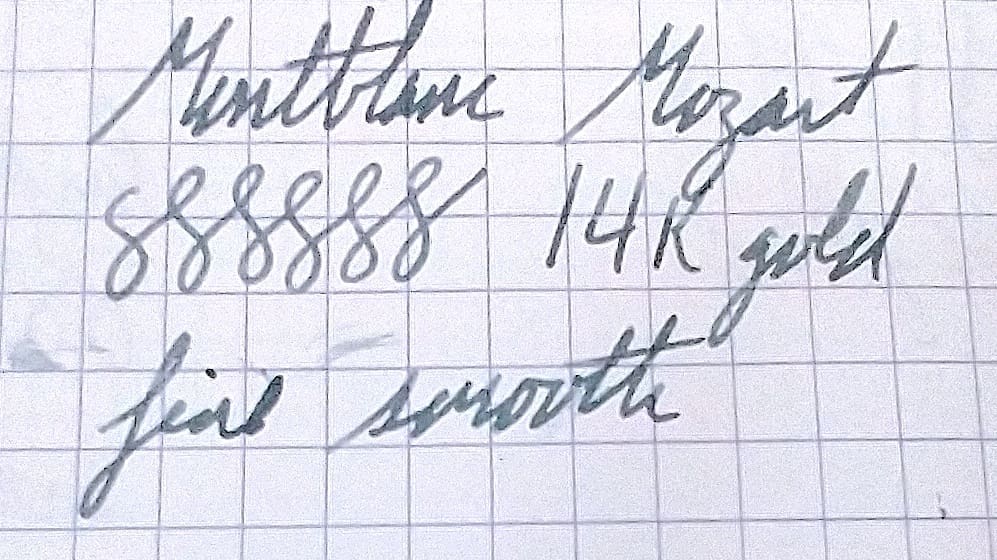 Montblanc Mozart
888888 14K gold
fine smooth